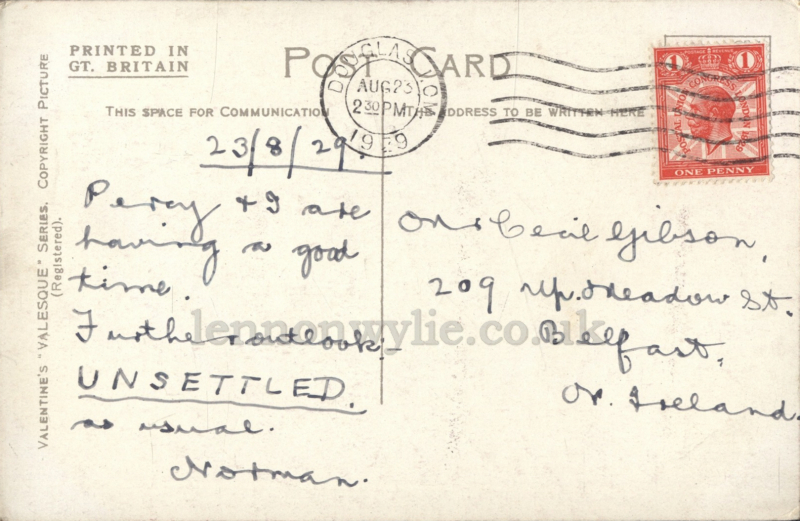 PRINTED IN
GT. BRITAIN
POST CARD
THIS SPACE FOR COMMUNICATION
THE ADDRESS TO BE WRITTEN HERE
DOUGLAS I.O.M.
AUG 23
2 30 PM
1929
1 1
POSTAL UNION CONGRESS LONDON 1929
ONE PENNY
VALENTINE'S "VALESQUE" SERIES. COPYRIGHT PICTURE
(Registered).
23/8/29.
Percy & I are
having a good
time.
Further outlook:-
UNSETTLED.
as usual.
Norman.
Mr Cecil Gibson,
209 Up. Meadow St.
Belfast,
Nr. Ireland.
lennonwylie.co.uk